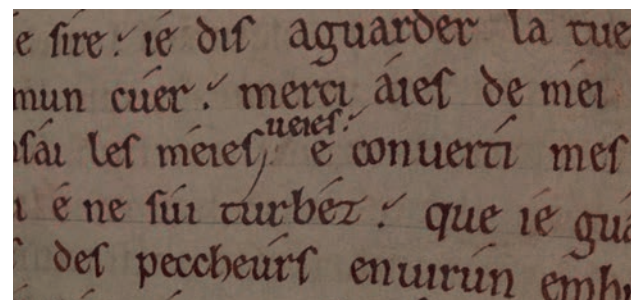 e sire. ie dis aguarder la tue
mun cúer. merci áies de méi
sái les méies ueies. e conuerti mes
i é ne súi turbéz. que ie gua
s des peccheúrs enuirún emb